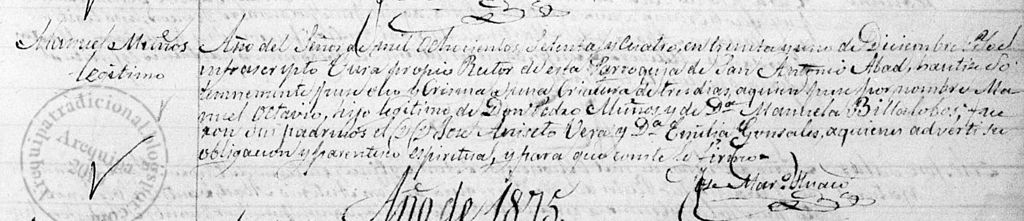 Manuel Muños
legitimo
Año del Señor de mil ochocientos setenta y cuatro, en treinta y uno de Diciembre. Yo el
infrascripto Cura propio Rector de esta Parroquia de San Antonio Abad, bautisé so-
lemnemente puse oleo y Crisma a una Criatura de tres dias, a quien puse por nombre Ma-
nuel Octavio, hijo legitimo de Don Pedro Muños y de Da. Manuela Billalobos; fue
ron sus padrinos el José Aniseto Vera y Da. Emilia Gonsales, a quienes adverti su
obligacion y parentesco espiritual, y para que conste lo firmo
José Mar.
Año de 1875.
Arequipatradicional.blogspot.com
Arequipa